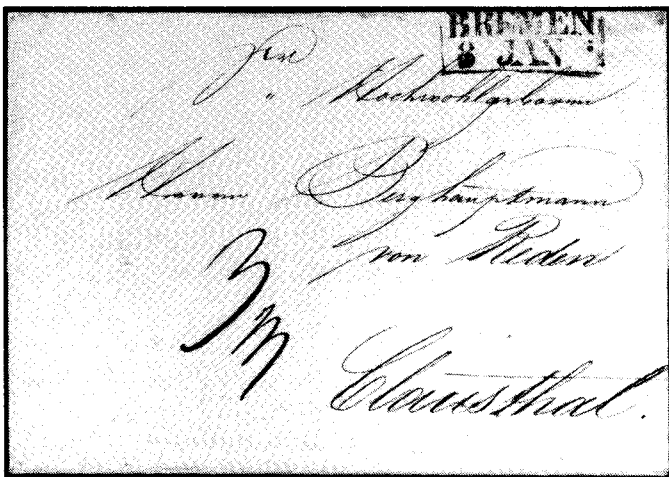 BREMEN
8 JAN
Hochwohlgeboren
Herrn Berghauptmann
von Reden
3
Clausthal.